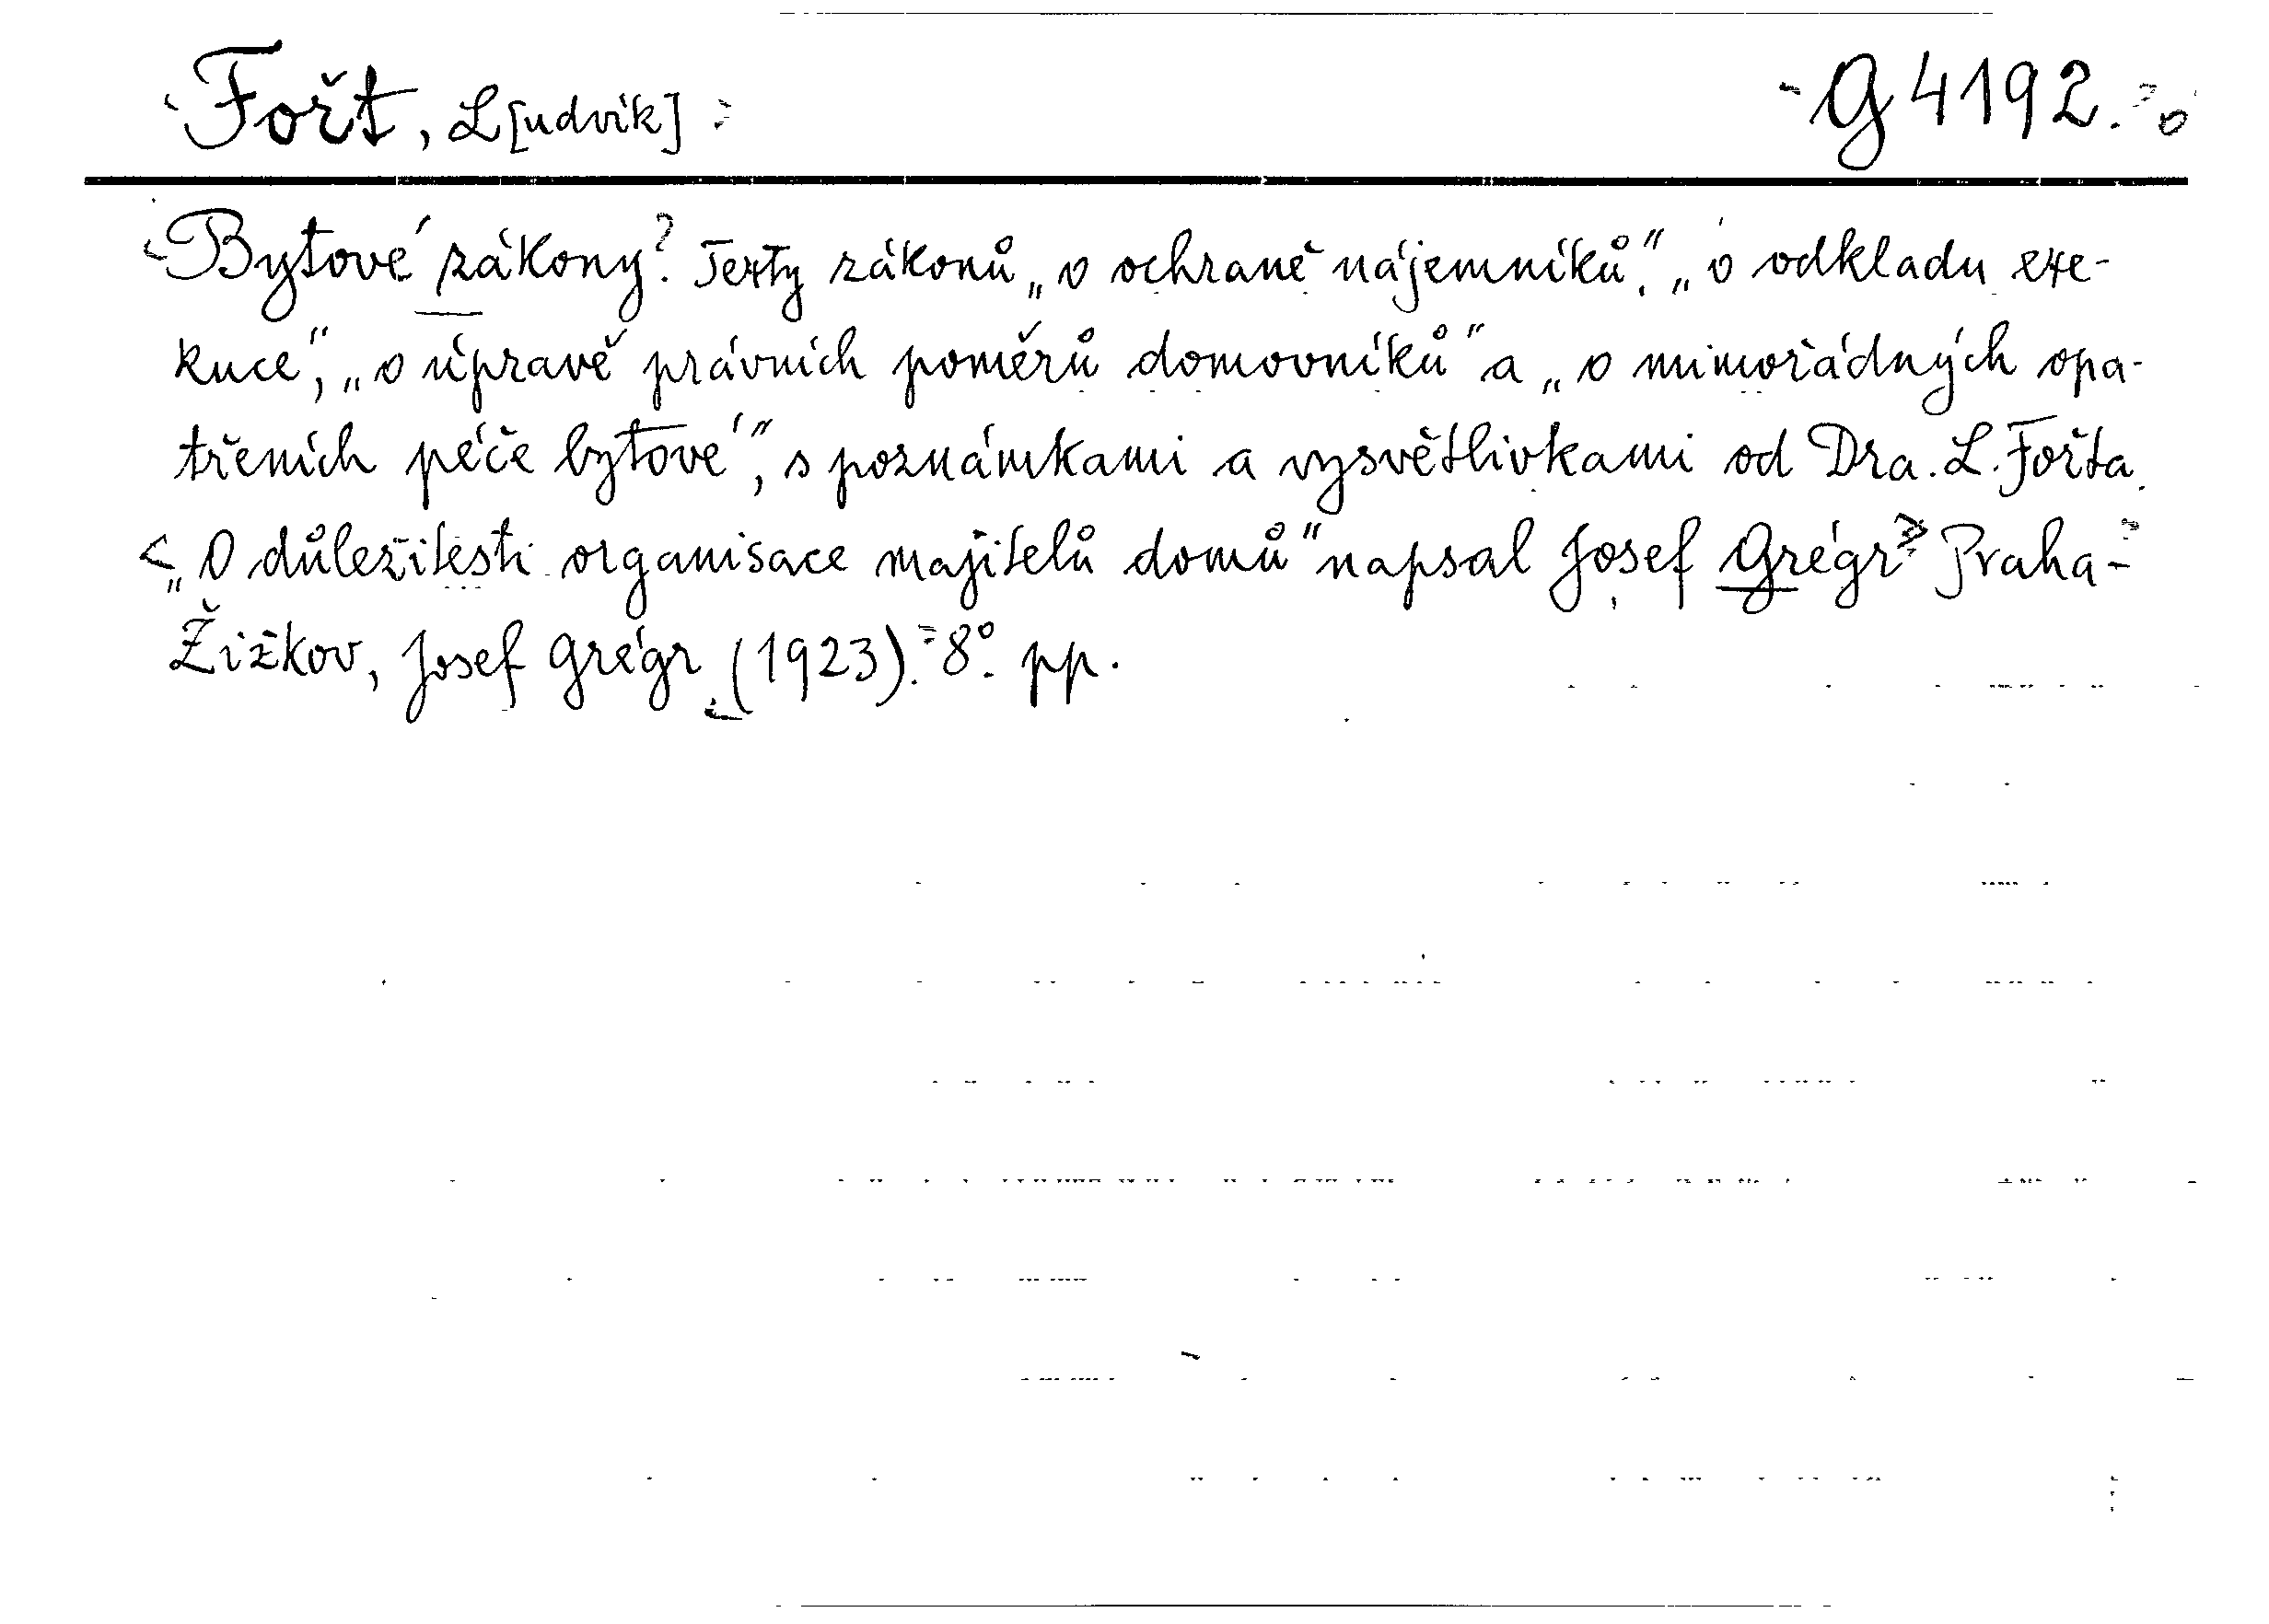 Fořt, L[udvík]
G 4192.
Bytové zákony. Texty zákonů „o ochraně nájemníků“, „o odkladu exe-
kuce“, „o úpravě právních poměrů domovníků“ a „o mimořádných opa-
třeních péče bytové“, s poznámkami a vysvětlivkami od Dra. L. Fořta.
„O důležitosti organisace majitelů domů“ napsal Josef Grégr. Praha-
Žižkov, Josef Grégr (1923). 8°. pp.